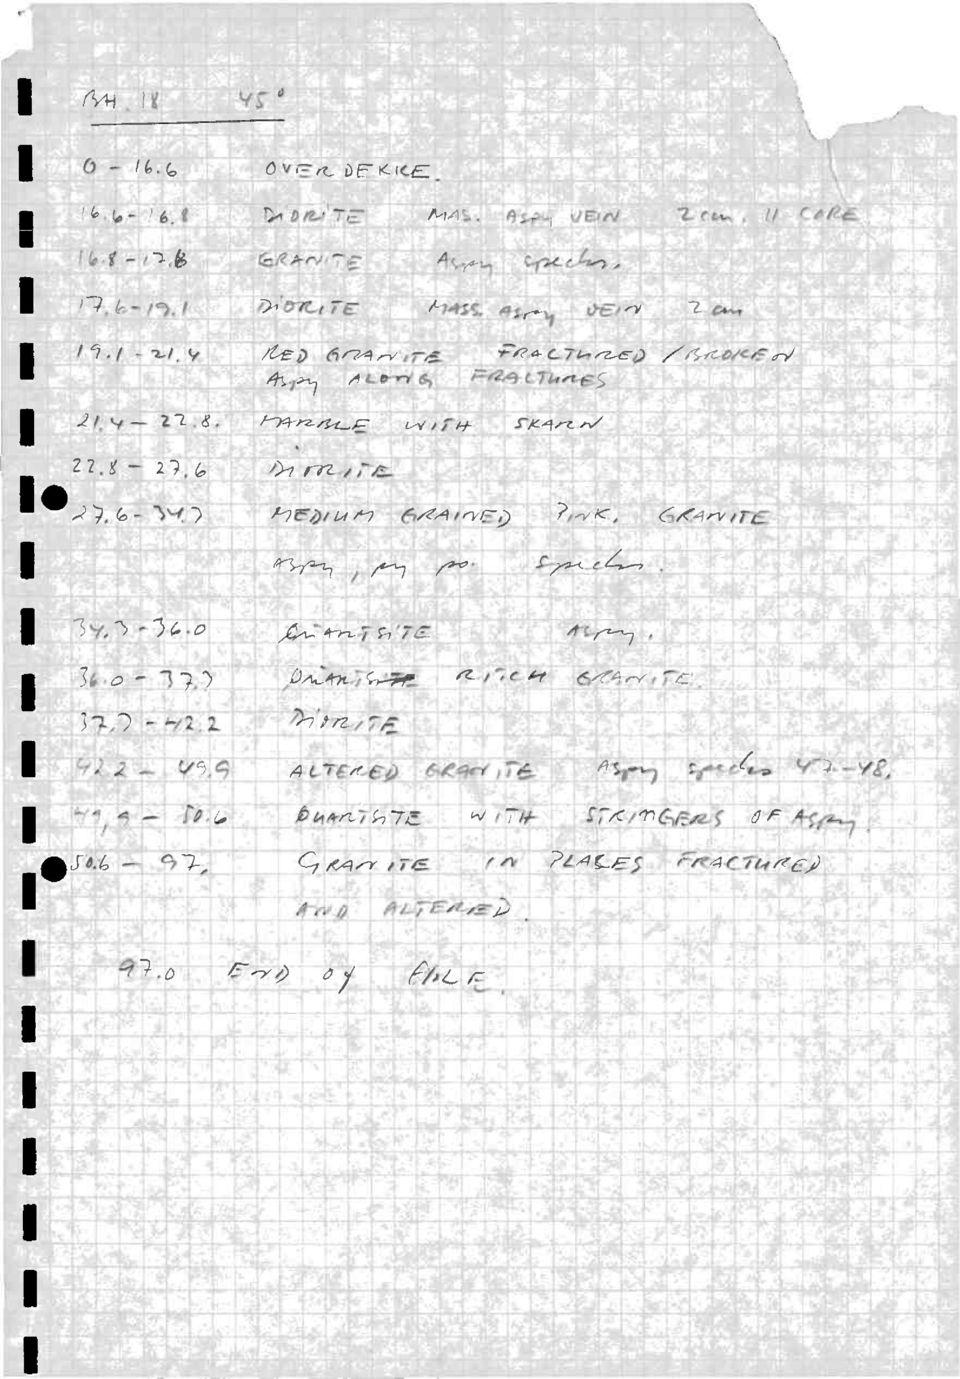 BH. 18 45°
0 - 16.6 OVERDEKKE.
16.6 - 16.8 DIORITE MAS. Aspy VEIN 2 cm. // CORE
16.8 - 17.6 GRANITE Aspy specks.
17.6 - 19.1 DIORITE MASS. Aspy VEIN 2 cm
19.1 - 21.4 RED GRANITE FRACTURED / BROKEN
Aspy ALONG FRACTURES
21.4 - 22.8. MARBLE WITH SKARN
22.8 - 27.6 DIORITE
27.6 - 34.3 MEDIUM GRAINED PINK. GRANITE
Aspy, py po. specks.
34.3 - 36.0 QUARTSITE Aspy.
36.0 - 37.3 RITCH GRANITE.
37.3 - 42.2 DIORITE
42.2 - 49.9 ALTERED GRANITE Aspy specks 47-48.
49,9 - 50.6 QUARTSITE WITH STRINGERS OF Aspy.
50.6 - 97. GRANITE IN PLASES FRACTURED
AND ALTERED.
97.0 END OF HOLE.